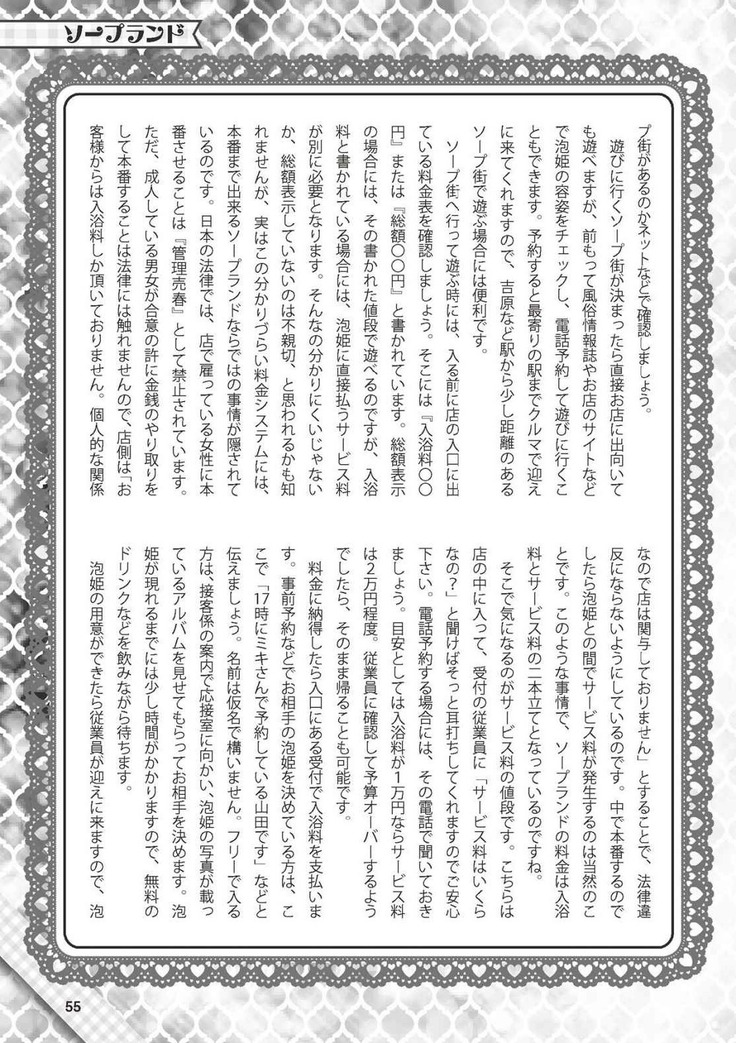 ソープランド
プ街があるのかネットなどで確認しましょう。
　遊びに行くソープ街が決まったら直接お店に出向いて
も遊べますが、前もって風俗情報誌やお店のサイトなど
で泡姫の容姿をチェックし、電話予約して遊びに行くこ
ともできます。予約すると最寄りの駅までクルマで迎え
に来てくれますので、吉原など駅から少し距離のある
ソープ街で遊ぶ場合には便利です。
　ソープ街へ行って遊ぶ時には、入る前に店の入口に出
ている料金表を確認しましょう。そこには『入浴料〇〇
円』または『総額〇〇円』と書かれています。総額表示
の場合には、その書かれた値段で遊べるのですが、入浴
料と書かれている場合には、泡姫に直接払うサービス料
が別に必要となります。そんなの分かりにくいじゃない
か、総額表示していないのは不親切、と思われるかも知
れませんが、実はこの分かりづらい料金システムには、
本番まで出来るソープランドならではの事情が隠されて
いるのです。日本の法律では、店で雇っている女性に本
番させることは『管理売春』として禁止されています。
ただ、成人している男女が合意の許に金銭のやり取りを
して本番することは法律には触れませんので、店側は「お
客様からは入浴料しか頂いておりません。個人的な関係
なので店は関与しておりません」とすることで、法律違
反にならないようにしているのです。中で本番するので
したら泡姫との間でサービス料が発生するのは当然のこ
とです。このような事情で、ソープランドの料金は入浴
料とサービス料の二本立てとなっているのですね。
　そこで気になるのがサービス料の値段です。こちらは
店の中に入って、受付の従業員に「サービス料はいくら
なの？」と聞けばそっと耳打ちしてくれますのでご安心
下さい。電話予約する場合には、その電話で聞いておき
ましょう。目安としては入浴料が１万円ならサービス料
は２万円程度。従業員に確認して予算オーバーするよう
でしたら、そのまま帰ることも可能です。
　料金に納得したら入口にある受付で入浴料を支払いま
す。事前予約などでお相手の泡姫を決めている方は、こ
こで「17時にミキさんで予約している山田です」などと
伝えましょう。名前は仮名で構いません。フリーで入る
方は、接客係の案内で応接室に向かい、泡姫の写真が載っ
ているアルバムを見せてもらってお相手を決めます。泡
姫が現れるまでには少し時間がかかりますので、無料の
ドリンクなどを飲みながら待ちます。
　泡姫の用意ができたら従業員が迎えに来ますので、泡
55